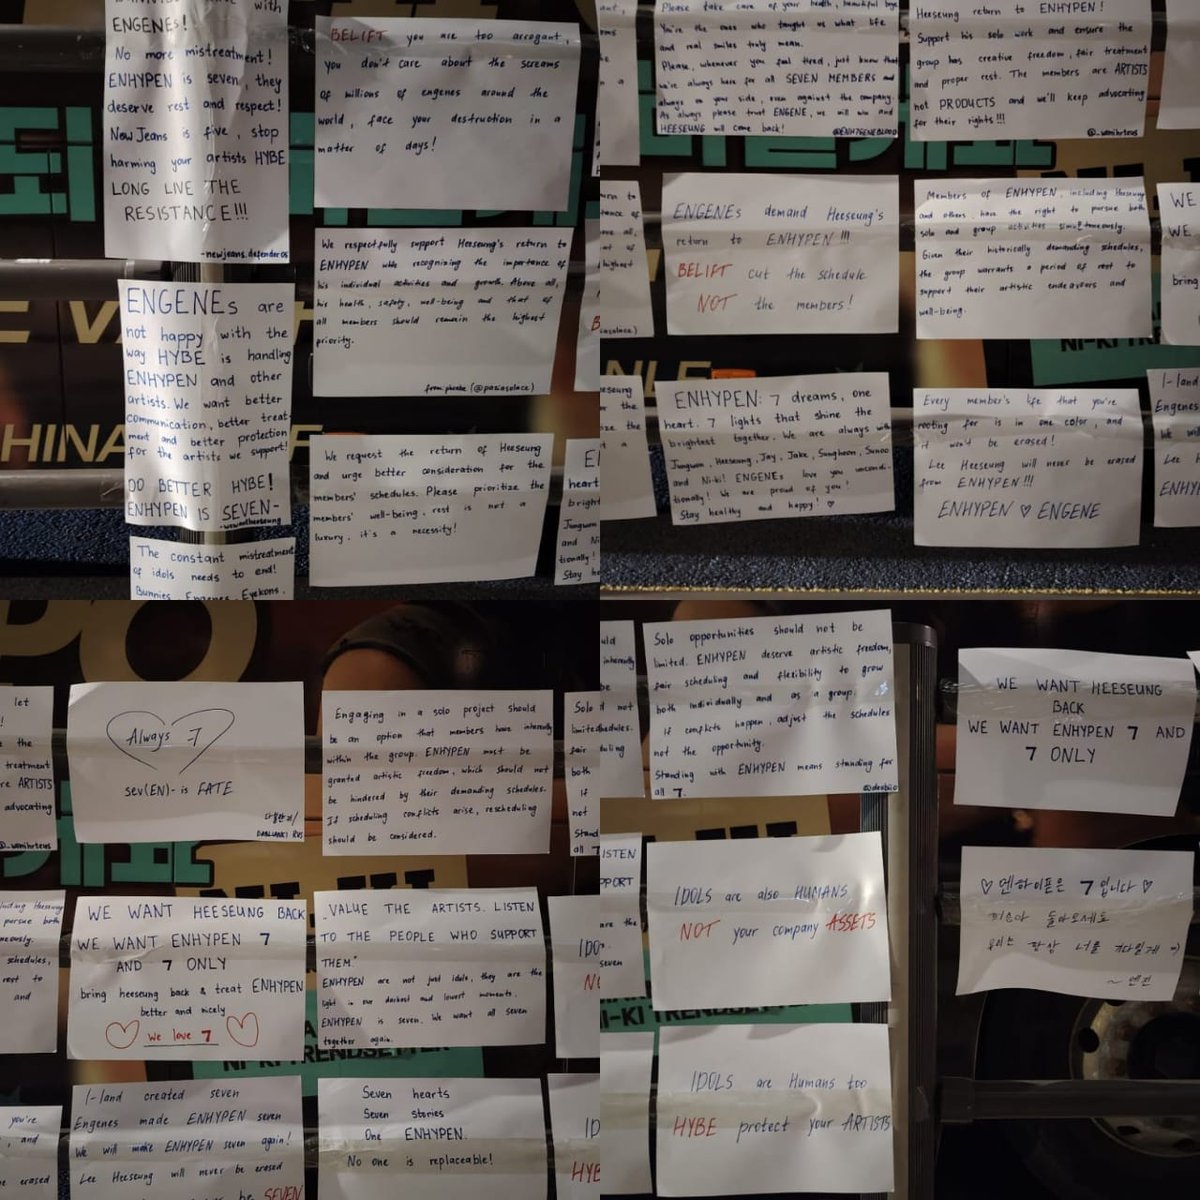 with
ENGENES!
No more mistreatment!
ENHYPEN is seven, they
deserve rest and respect!
New Jeans is five, stop
harming your artists HYBE
LONG LIVE THE
RESISTANCE!!!
-newjeans.defenders
ENGENEs are
not happy with the
way HYBE is handling
ENHYPEN and other
artists. We want better
communication, better treat-
ment and better protection
for the artists we support!
DO BETTER HYBE!
ENHYPEN IS SEVEN-
The constant mistreatment
of idols needs to end!
Bunnies, Engenes, Eyekons,
BELIFT you are too arrogant,
you don't care about the screams
of millions of engenes around the
world, face your destruction in a
matter of days!
We respectfully support Heeseung's return to
ENHYPEN while recognizing the importance of
his individual activities and growth. Above all,
his health, safety, well-being and that of
all members should remain the highest
priority.
from phoebe
We request the return of Heeseung
and urge better consideration for the
members' schedules. Please prioritize the
members' well-being, rest is not a
luxury, it's a necessity!
Please take care of your health, beautiful boys
You're the ones who taught us what life
and real smiles truly mean.
Please, whenever you feel tired, just know that
we're always here for all SEVEN MEMBERS and
always on your side, even against the company.
As always please trust ENGENE, we will win and
HEESEUNG will come back!
@ENH7GENEBLOOD
Heeseung return to ENHYPEN!
Support his solo work and ensure the
group has creative freedom, fair treatment
and proper rest. The members are ARTISTS
not PRODUCTS and we'll keep advocating
for their rights!!!
ENGENEs demand Heeseung's
return to ENHYPEN!!!
BELIFT cut the schedule
NOT the members!
Members of ENHYPEN, including Heeseung
and others, have the right to pursue both
solo and group activities simultaneously.
Given their historically demanding schedules,
the group warrants a period of rest to
support their artistic endeavours and
well-being.
WE
WE
bring
NI-KI TR
ENHYPEN: 7 dreams, one
heart. 7 lights that shine the
brightest together. We are always with
Jungwon, Heeseung, Jay, Jake, Sunghoon, Sunoo
and Ni-ki! ENGENEs love you uncondi-
tionally! We are proud of you!
Stay healthy and happy! ♡
Every member's life that you're
rooting for is in one color, and
it won't be erased!
Lee Heeseung will never be erased
from ENHYPEN!!!
ENHYPEN ♡ ENGENE
I-land
Engenes
We will
Lee
ENHY
Always 7
sev(EN)- is FATE
Engaging in a solo project should
be an option that members have inherently
within the group. ENHYPEN must be
granted artistic freedom, which should not
be hindered by their demanding schedules.
If scheduling conflicts arise, rescheduling
should be considered.
WE WANT HEESEUNG BACK
WE WANT ENHYPEN 7
AND 7 ONLY
bring heeseung back & treat ENHYPEN
better and nicely
We love 7
"VALUE THE ARTISTS. LISTEN
TO THE PEOPLE WHO SUPPORT
THEM."
ENHYPEN are not just idols, they are the
light in our darkest and lowest moments.
ENHYPEN is seven. We want all seven
together again.
NI-KI TRENDSETTER
I-land created seven
Engenes made ENHYPEN seven
We will make ENHYPEN seven again!
Lee Heeseung will never be erased
be SEVEN
Seven hearts
Seven stories
One ENHYPEN.
No one is replaceable!
Solo opportunities should not be
limited. ENHYPEN deserve artistic freedom,
fair scheduling and flexibility to grow
both individually and as a group.
If conflicts happen, adjust the schedules
not the opportunity.
Standing with ENHYPEN means standing for
all 7.
IDOLS are also HUMANS,
NOT your company ASSETS
NI-KI TRENDSETTER
IDOLS are Humans too
HYBE protect your ARTISTS
WE WANT HEESEUNG
BACK
WE WANT ENHYPEN 7 AND
7 ONLY
♡ 엔하이픈은 7입니다 ♡
희승아 돌아오세요
우리는 항상 너를 기다릴게 =)
~ 엔진